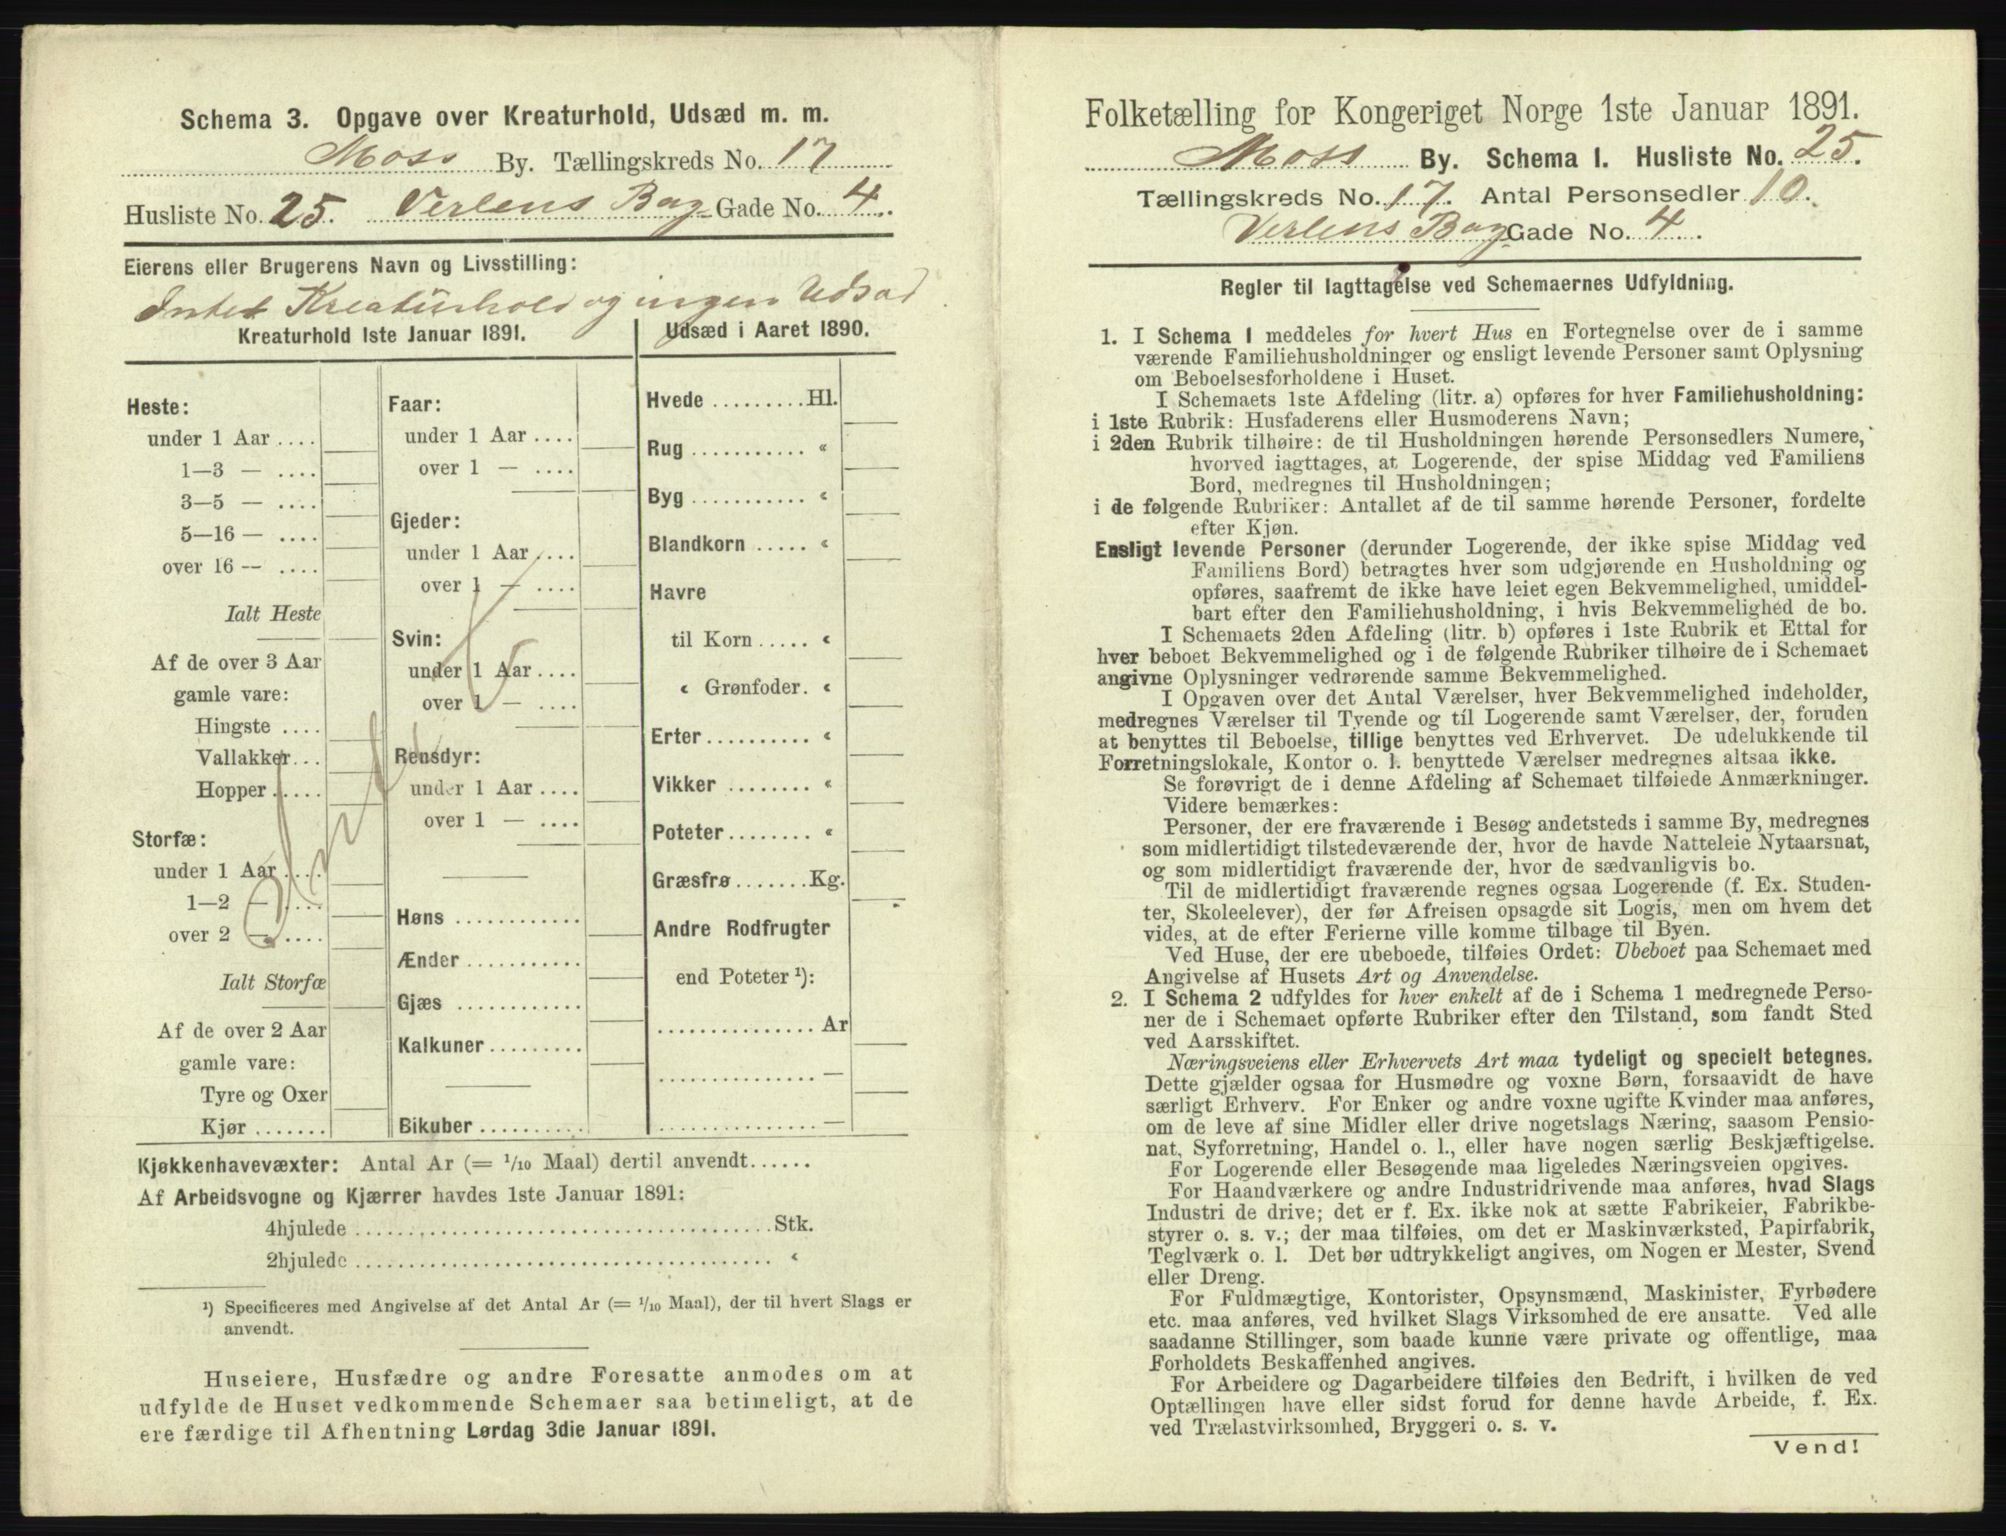 Schema 3. Opgave over Kreaturhold, Udsæd m. m.
Moss By. Tællingskreds No. 17
Husliste No. 25. Verlens Bag-Gade No. 4.
Eierens eller Brugerens Navn og Livsstilling:
Intet Kreaturhold og ingen Udsæd.
Kreaturhold 1ste Januar 1891.
Heste:
under 1 Aar ....
1—3 — ....
3—5 — ....
5—16 — ....
over 16 — ....
Ialt Heste
Af de over 3 Aar
gamle vare:
Hingste ....
Vallakker...
Hopper.....
Storfæ:
under 1 Aar ....
1—2 — ....
over 2 — ....
Ialt Storfæ
Af de over 2 Aar
gamle vare:
Tyre og Oxer
Kjør .......
Faar:
under 1 Aar ....
over 1 — ....
Gjeder:
under 1 Aar ....
over 1 — ....
Svin:
under 1 Aar ....
over 1 — ....
Rensdyr:
under 1 Aar ....
over 1 — ....
Høns ............
Ænder...........
Gjæs ............
Kalkuner.........
Bikuber..........
Intet
Udsæd i Aaret 1890.
Hvede .........Hl.
Rug ........... «
Byg ........... «
Blandkorn ..... «
Havre
til Korn ..... «
« Grønfoder. «
Erter.......... «
Vikker ........ «
Poteter........ «
Græsfrø .......Kg.
Andre Rodfrugter
end Poteter ¹):
............... Ar
............... —
............... —
Kjøkkenhavevæxter: Antal Ar (= 1/10 Maal) dertil anvendt......
Af Arbeidsvogne og Kjærrer havdes 1ste Januar 1891:
4hjulede ........................................Stk.
2hjulede ........................................ «
¹) Specificeres med Angivelse af det Antal Ar (= 1/10 Maal), der til hvert Slags er
anvendt.
Huseiere, Husfædre og andre Foresatte anmodes om at
udfylde de Huset vedkommende Schemaer saa betimeligt, at de
ere færdige til Afhentning Lørdag 3die Januar 1891.
Folketælling for Kongeriget Norge 1ste Januar 1891.
Moss By. Schema 1. Husliste No. 25.
Tællingskreds No. 17. Antal Personsedler 10.
Verlens Bag-Gade No. 4.
Regler til Iagttagelse ved Schemaernes Udfyldning.
1. I Schema 1 meddeles for hvert Hus en Fortegnelse over de i samme
værende Familiehusholdninger og ensligt levende Personer samt Oplysning
om Beboelsesforholdene i Huset.
I Schemaets 1ste Afdeling (litr. a) opføres for hver Familiehusholdning:
i 1ste Rubrik: Husfaderens eller Husmoderens Navn;
i 2den Rubrik tilhøire: de til Husholdningen hørende Personsedlers Numere,
hvorved iagttages, at Logerende, der spise Middag ved Familiens
Bord, medregnes til Husholdningen;
i de følgende Rubriker: Antallet af de til samme hørende Personer, fordelte
efter Kjøn.
Ensligt levende Personer (derunder Logerende, der ikke spise Middag ved
Familiens Bord) betragtes hver som udgjørende en Husholdning og
opføres, saafremt de ikke have leiet egen Bekvemmelighed, umiddel-
bart efter den Familiehusholdning, i hvis Bekvemmelighed de bo.
I Schemaets 2den Afdeling (litr. b) opføres i 1ste Rubrik et Ettal for
hver beboet Bekvemmelighed og i de følgende Rubriker tilhøire de i Schemaet
angivne Oplysninger vedrørende samme Bekvemmelighed.
I Opgaven over det Antal Værelser, hver Bekvemmelighed indeholder,
medregnes Værelser til Tyende og til Logerende samt Værelser, der, foruden
at benyttes til Beboelse, tillige benyttes ved Erhvervet. De udelukkende til
Forretningslokale, Kontor o. l. benyttede Værelser medregnes altsaa ikke.
Se forøvrigt de i denne Afdeling af Schemaet tilføiede Anmærkninger.
Videre bemærkes:
Personer, der ere fraværende i Besøg andetsteds i samme By, medregnes
som midlertidigt tilstedeværende der, hvor de havde Natteleie Nytaarsnat,
og som midlertidigt fraværende der, hvor de sædvanligvis bo.
Til de midlertidigt fraværende regnes ogsaa Logerende (f. Ex. Studen-
ter, Skoleelever), der før Afreisen opsagde sit Logis, men om hvem det
vides, at de efter Ferierne ville komme tilbage til Byen.
Ved Huse, der ere ubeboede, tilføies Ordet: Ubeboet paa Schemaet med
Angivelse af Husets Art og Anvendelse.
2. I Schema 2 udfyldes for hver enkelt af de i Schema 1 medregnede Perso-
ner de i Schemaet opførte Rubriker efter den Tilstand, som fandt Sted
ved Aarsskiftet.
Næringsveiens eller Erhvervets Art maa tydeligt og specielt betegnes.
Dette gjælder ogsaa for Husmødre og voxne Børn, forsaavidt de have
særligt Erhverv. For Enker og andre voxne ugifte Kvinder maa anføres,
om de leve af sine Midler eller drive nogetslags Næring, saasom Pensio-
nat, Syforretning, Handel o. l., eller have nogen særlig Beskjæftigelse.
For Logerende eller Besøgende maa ligeledes Næringsveien opgives.
For Haandværkere og andre Industridrivende maa anføres, hvad Slags
Industri de drive; det er f. Ex. ikke nok at sætte Fabrikeier, Fabrikbe-
styrer o. s. v.; der maa tilføies, om det er Maskinværksted, Papirfabrik,
Teglværk o. l. Det bør udtrykkeligt angives, om Nogen er Mester, Svend
eller Dreng.
For Fuldmægtige, Kontorister, Opsynsmænd, Maskinister, Fyrbødere
etc. maa anføres, ved hvilket Slags Virksomhed de ere ansatte. Ved alle
saadanne Stillinger, som baade kunne være private og offentlige, maa
Forholdets Beskaffenhed angives.
For Arbeidere og Dagarbeidere tilføies den Bedrift, i hvilken de ved
Optællingen have eller sidst forud for denne havde Arbeide, f. Ex.
ved Trælastvirksomhed, Bryggeri o. s. v.
Vend!